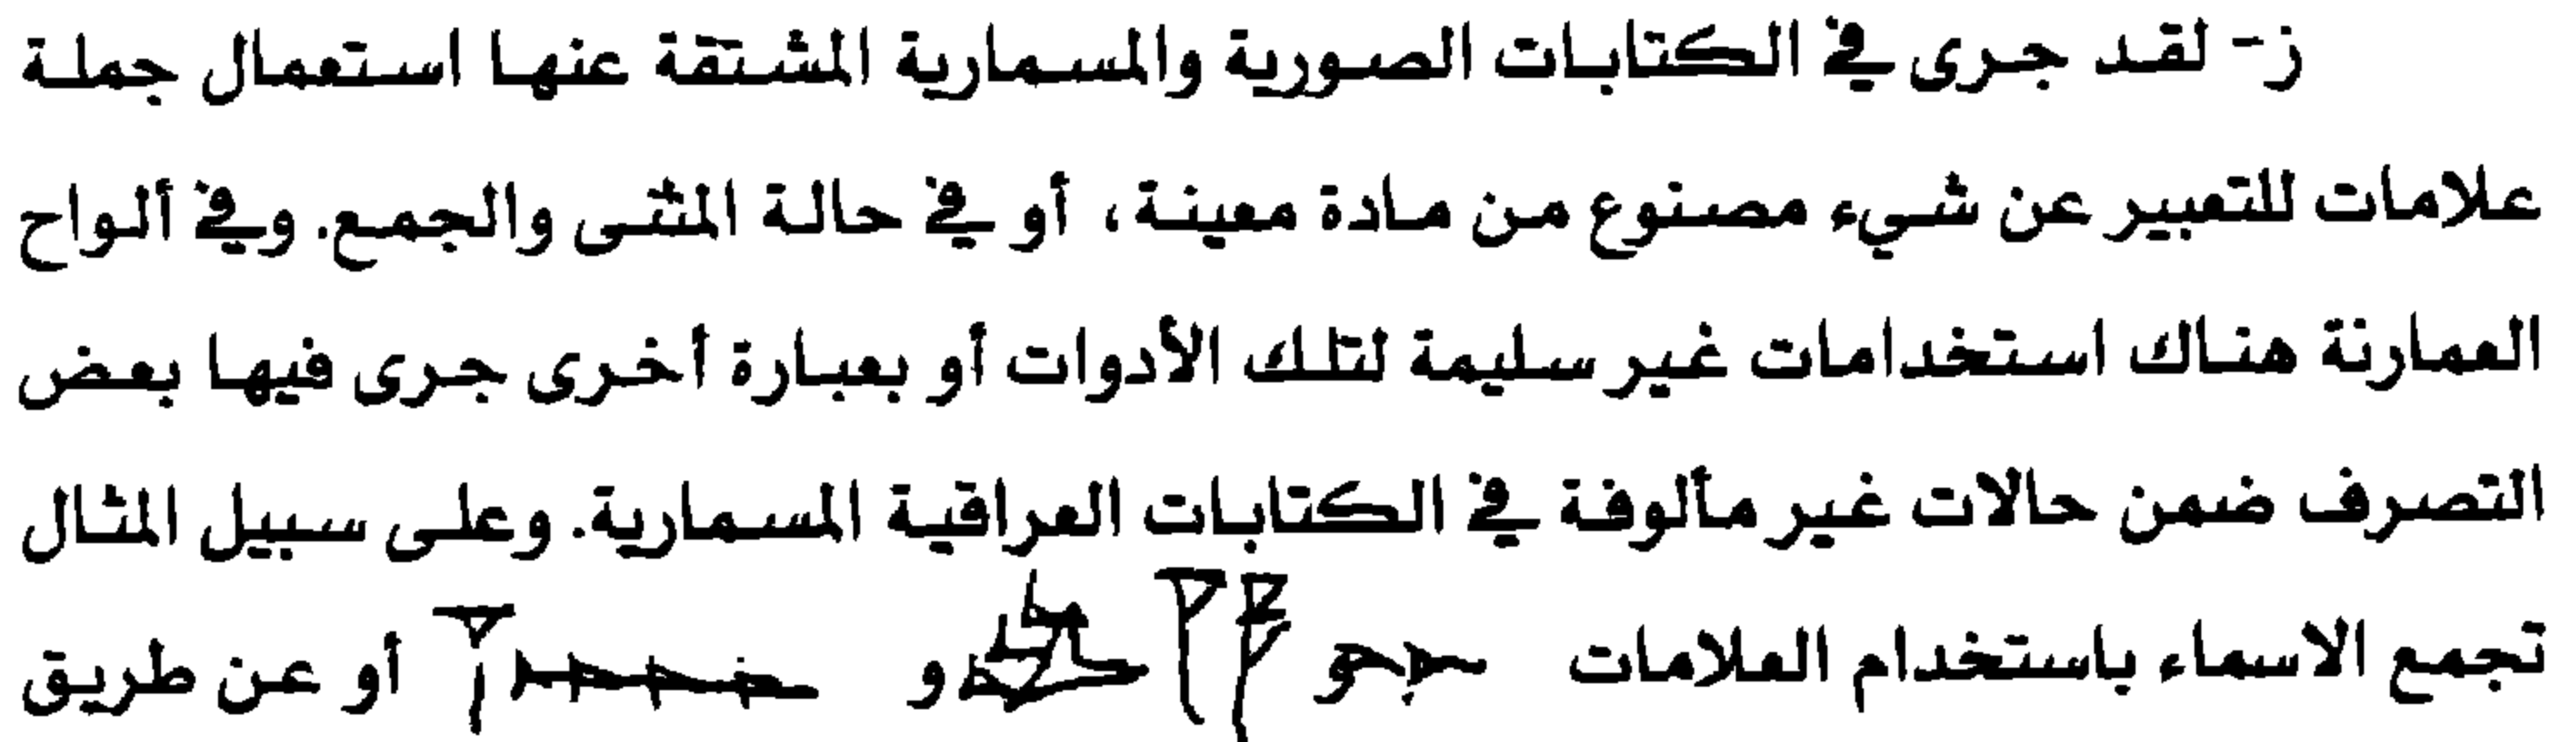 ز- لقد جرى في الكتابات الصورية والمسمارية المشتقة عنها استعمال جملة
علامات للتعبير عن شيء مصنوع من مادة معينة، أو في حالة المثنى والجمع. وفي ألواح
العمارنة هناك استخدامات غير سليمة لتلك الأدوات أو بعبارة أخرى جرى فيها بعض
التصرف ضمن حالات غير مألوفة في الكتابات العراقية المسمارية. وعلى سبيل المثال
تجمع الاسماء باستخدام العلامات و و أو عن طريق